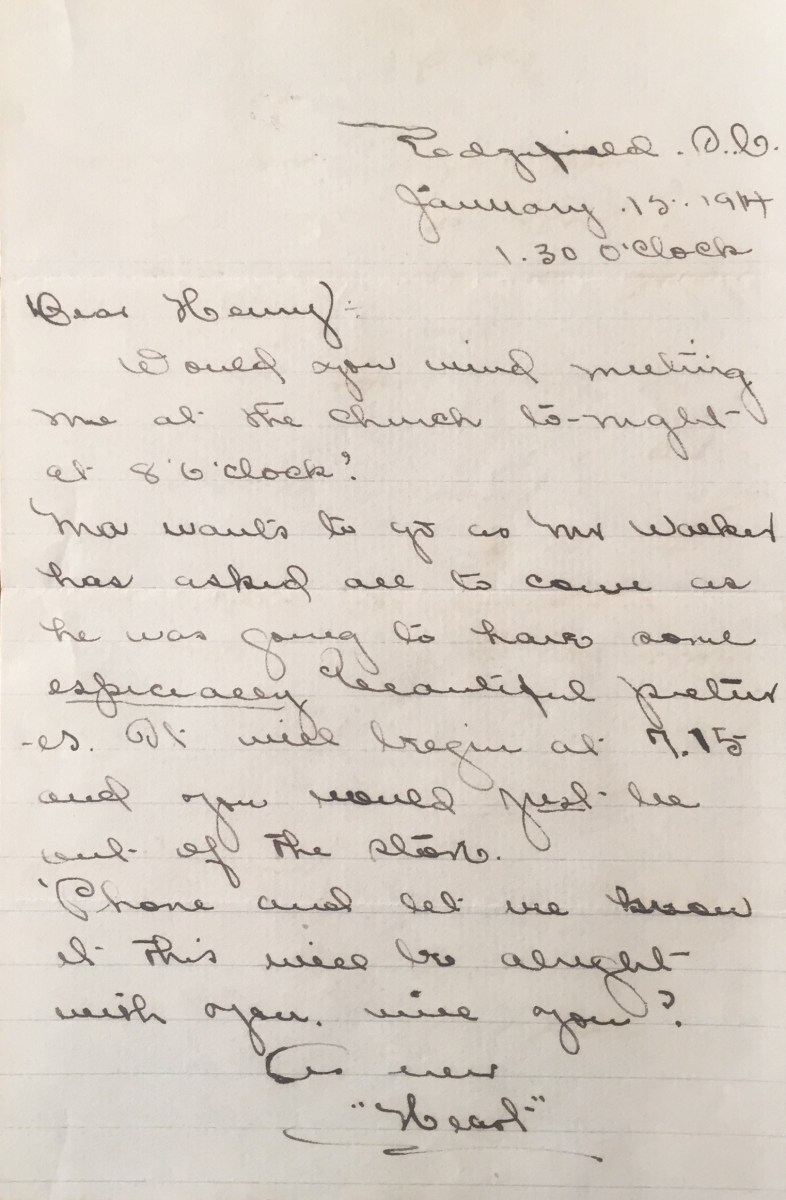 Ridgefield. S.C.
January. 15. 1914
1.30 O'Clock
Dear Henry:
Would you mind meeting
me at the church to-night
at 8 'O'clock?
Ma wants to go as Mr Walker
has asked all to come as
he was going to have some
especially beautiful pictur
-es. It will begin at 7.15
and you would just be
out of the store.
'Phone and let me know
if this will be alright
with you. will you?
As ever
"Heart"